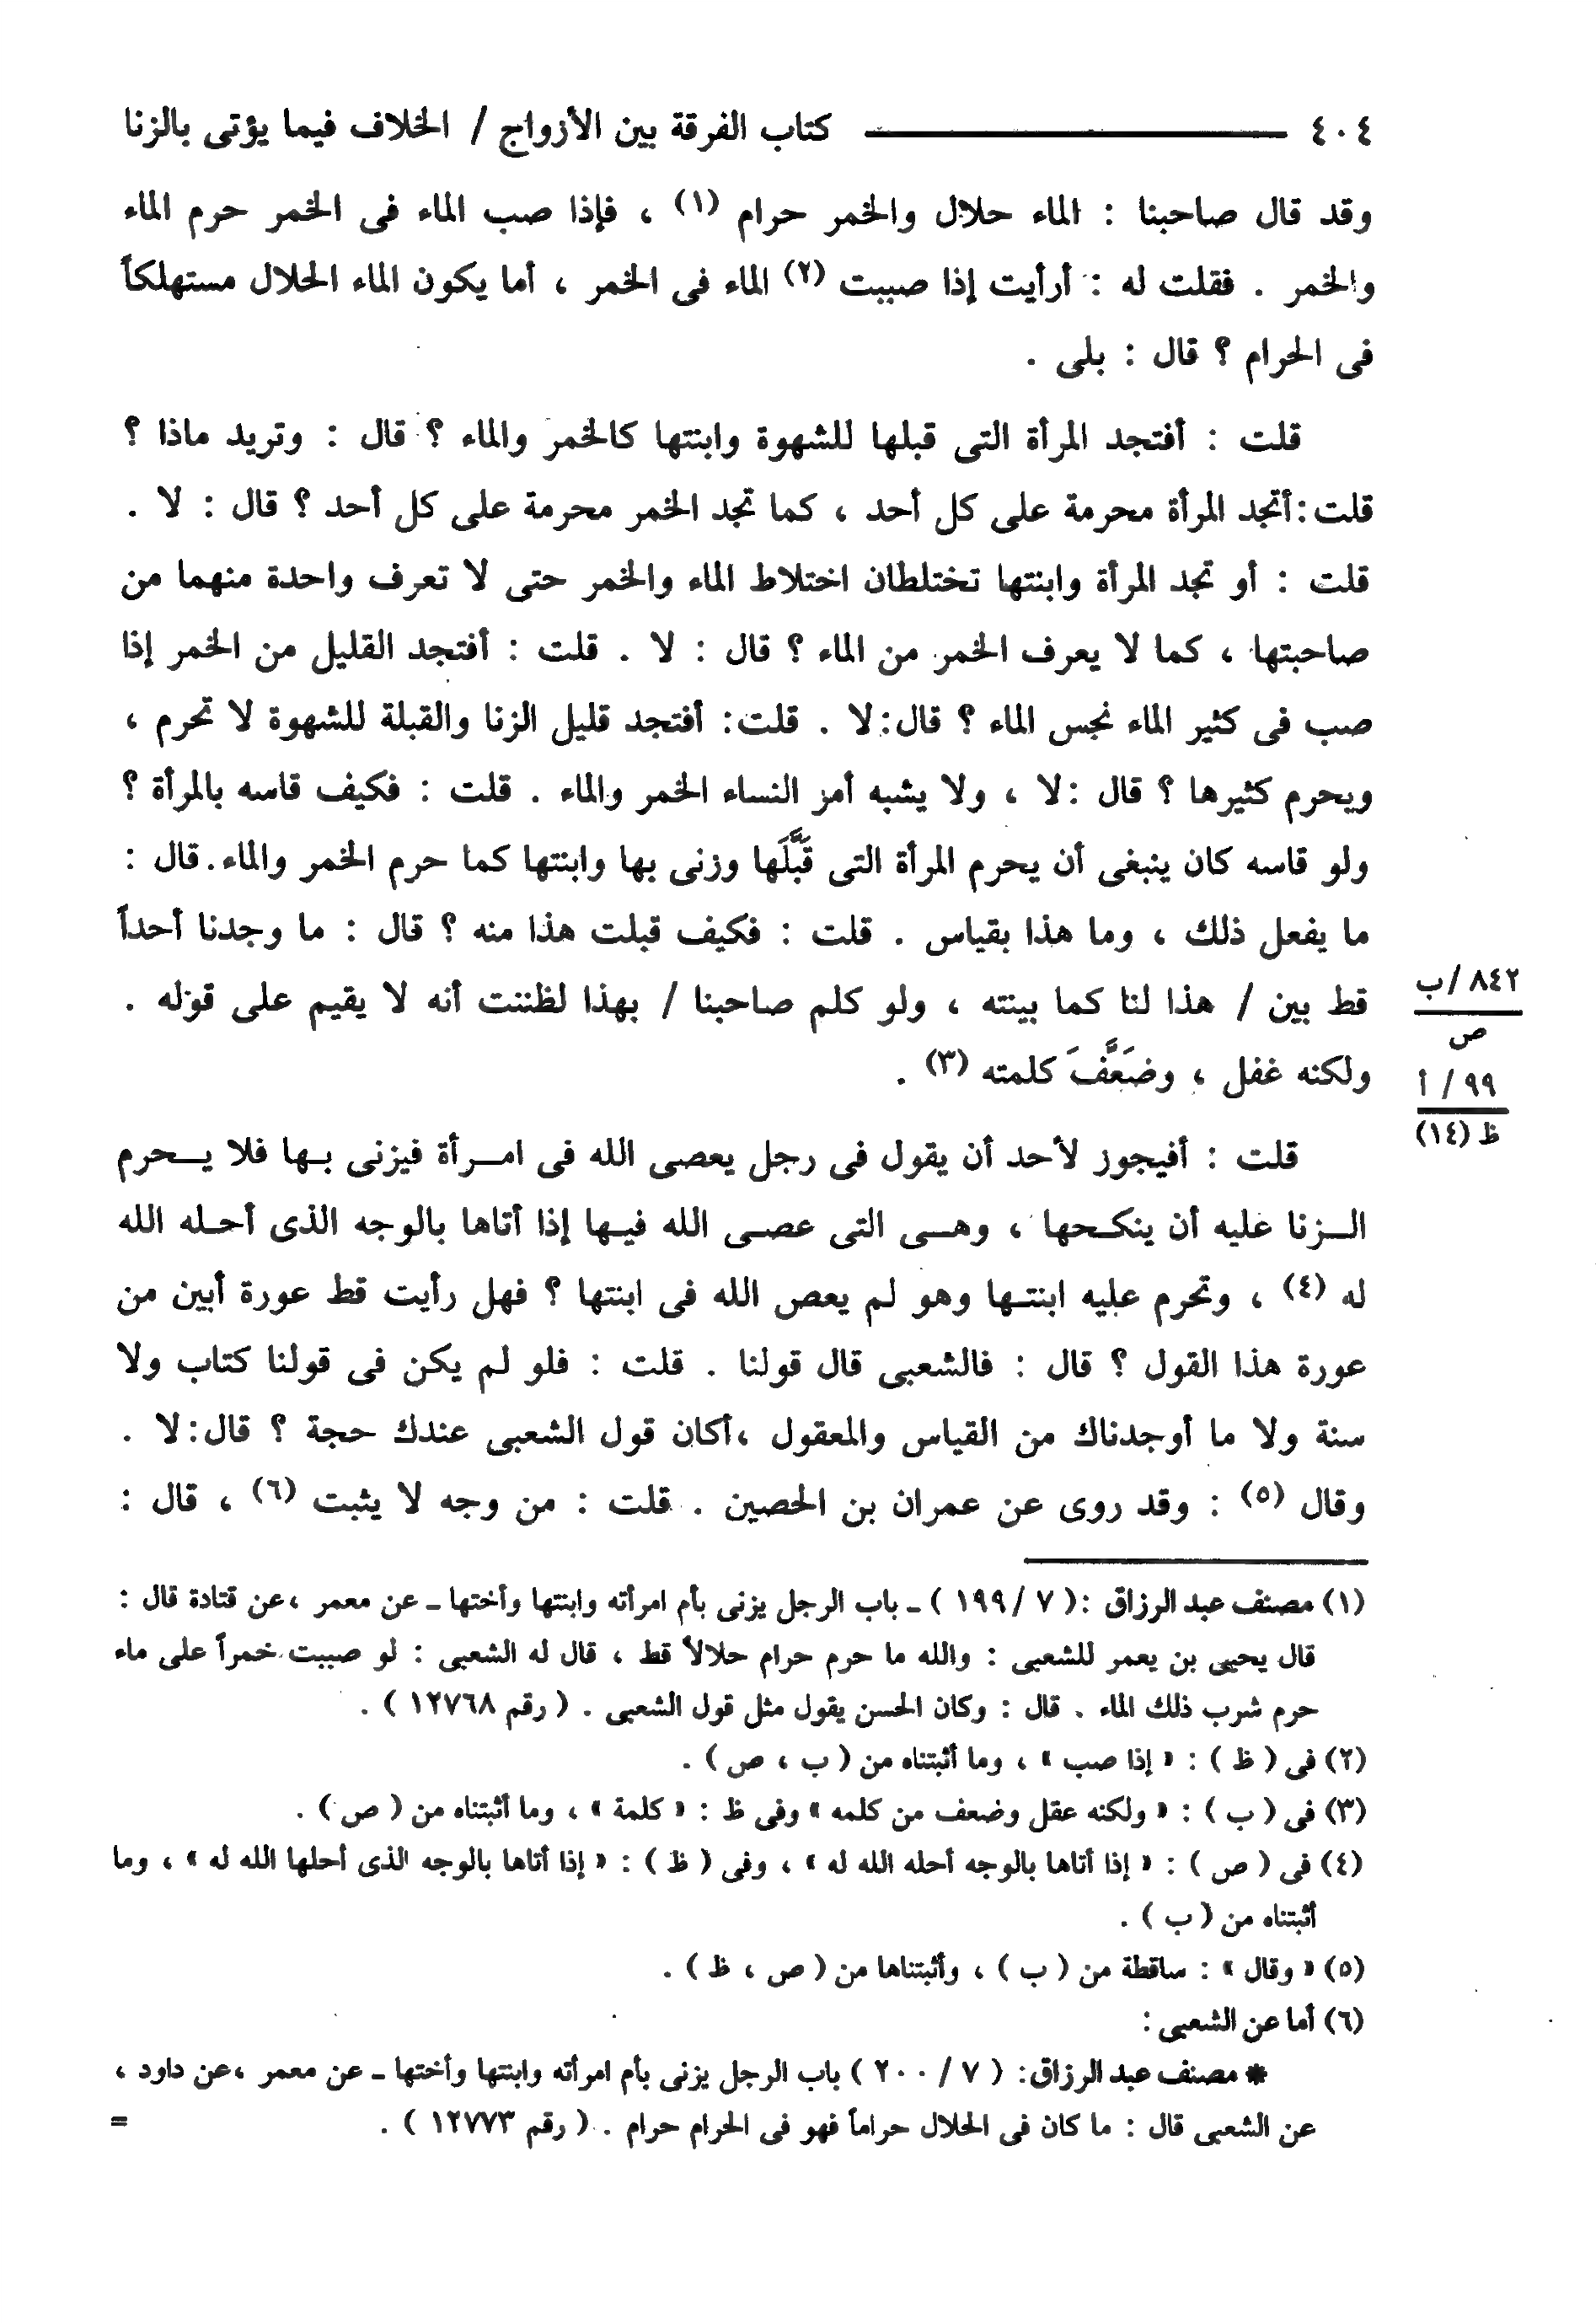 ٤٠٤ كتاب الفرقة بين الأزواج / الخلاف فيما يؤتى بالزنا
وقد قال صاحبنا : الماء حلال والخمر حرام (١) ، فإذا صب الماء فى الخمر حرم الماء
والخمر . فقلت له : أرأيت إذا صببت (٢) الماء فى الخمر ، أما يكون الماء الحلال مستهلكاً
فى الحرام ؟ قال : بلى .
قلت : أفتجد المرأة التى قبلها للشهوة وابنتها كالخمر والماء ؟ قال : وتريد ماذا ؟
قلت:أتجد المرأة محرمة على كل أحد ، كما تجد الخمر محرمة على كل أحد ؟ قال : لا .
قلت : أو تجد المرأة وابنتها تختلطان اختلاط الماء والخمر حتى لا تعرف واحدة منهما من
صاحبتها ، كما لا يعرف الخمر من الماء ؟ قال : لا . قلت : أفتجد القليل من الخمر إذا
صب فى كثير الماء نجس الماء ؟ قال:لا . قلت: أفتجد قليل الزنا والقبلة للشهوة لا تحرم ،
ويحرم كثيرها ؟ قال :لا ، ولا يشبه أمر النساء الخمر والماء . قلت : فكيف قاسه بالمرأة ؟
ولو قاسه كان ينبغى أن يحرم المرأة التى قَبَّلَها وزنى بها وابنتها كما حرم الخمر والماء.قال :
ما يفعل ذلك ، وما هذا بقياس . قلت : فكيف قبلت هذا منه ؟ قال : ما وجدنا أحداً
قط بين / هذا لنا كما بينته ، ولو كلم صاحبنا / بهذا لظننت أنه لا يقيم على قوله .
٨٤٢ /ب
ص
ولكنه غفل ، وضَعَّفَ كلمته (٣) .
٩٩ / أ
ظ (١٤)
قلت : أفيجوز لأحد أن يقول فى رجل يعصى الله فى امـرأة فيزنى بـها فلا يـحرم
الـزنا عليه أن ينكـحها ، وهـى التى عصـى الله فيـها إذا أتاها بالوجه الذى أحـله الله
له (٤) ، وتحرم عليه ابنتـها وهو لم يعص الله فى ابنتها ؟ فهل رأيت قط عورة أبين من
عورة هذا القول ؟ قال : فالشعبى قال قولنا . قلت : فلو لم يكن فى قولنا كتاب ولا
سنة ولا ما أوجدناك من القياس والمعقول ،أكان قول الشعبى عندك حجة ؟ قال:لا .
وقال (٥) : وقد روى عن عمران بن الحصين . قلت : من وجه لا يثبت (٦) ، قال :
(١) مصنف عبد الرزاق :( ٧ /١٩٩ ) ـ باب الرجل يزنى بأم امرأته وابنتها وأختها ـ عن معمر ،عن قتادة قال :
قال يحيى بن يعمر للشعبى : والله ما حرم حرام حلالاً قط ، قال له الشعبى : لو صببت خمراً على ماء
حرم شرب ذلك الماء . قال : وكان الحسن يقول مثل قول الشعبى . ( رقم ١٢٧٦٨ ) .
(٢) فى ( ظ ) : « إذا صب » ، وما أثبتناه من ( ب ، ص ) .
(٣) فى ( ب ) : « ولكنه عقل وضعف من كلمه » وفى ظ : « كلمة » ، وما أثبتناه من ( ص ) .
(٤) فى ( ص ) : « إذا أتاها بالوجه أحله الله له » ، وفى ( ظ ) : « إذا أتاها بالوجه الذى أحلها الله له » ، وما
أثبتناه من ( ب ) .
(٥) « وقال » : ساقطة من ( ب ) ، وأثبتناها من ( ص ، ظ ) .
(٦) أما عن الشعبى :
* مصنف عبد الرزاق: ( ٧ / ٢٠٠ ) باب الرجل يزنى بأم امرأته وابنتها وأختها ـ عن معمر ،عن داود ،
عن الشعبى قال : ما كان فى الحلال حراماً فهو فى الحرام حرام . ( رقم ١٢٧٧٣ ) . =